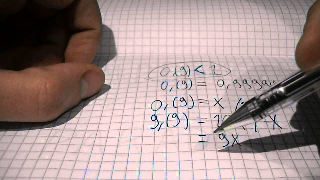 0,(9) < 1
0,(9) = 0,9999
0,(9) = x /
9,(9) = 1 x
= 9x